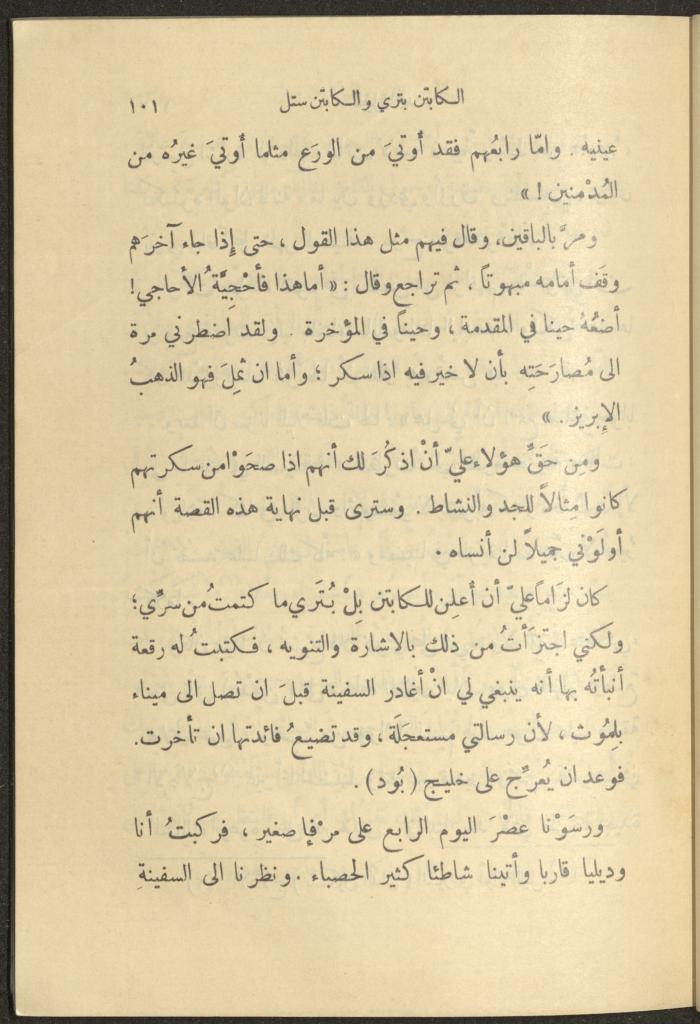 الكابتن بتري والكابتن ستل ١٠١
عينيه . وامّا رابعُهم فقد أوتيَ من الورَع مثلما أوتيَ غيرُه من
المُدْمنين ! »
ومرَّ بالباقين، وقال فيهم مثل هذا القول ، حتى إِذا جاء آخرَهم
وقَف أمامه مبهوتاً ، ثم تراجع وقال : « أما هذا فأحْجِيَّةُ الأحاجي !
أضعُهُ حينا في المقدمة ، وحيناً في المؤخرة . ولقد اضطرني مرة
الى مُصارَحَتِه بأن لا خير فيه اذا سكر ؛ وأما ان ثمِلَ فهو الذهبُ
الإِبريز . »
ومِن حَقِّ هؤلاء عليّ أنْ اذكُرَ لك أنهم اذا صحَوْا من سكرتهم
كانوا مِثالاً للجد والنشاط . وسترى قبل نهاية هذه القصة أنهم
أولَوْني جميلاً لن أنساه .
كان لزَاماً عليّ أن أعلِن للكابتن بِلْ بُتَري ما كتمتُ من سرِّي ؛
ولكني اجتزَأتُ من ذلك بالاشارة والتنويه ، فكتبتُ له رقعة
أنبأتُه بها أنه ينبغي لي انْ أغادر السفينة قبلَ ان تصل الى ميناء
بلِمُوث ، لأن رسالتي مستعجَلَة ، وقد تضيعُ فائدتها ان تأخرت.
فوعد ان يُعرِّج على خليج ( بُود ) .
ورسَوْنا عصْرَ اليوم الرابع على مرْفإ صغير ، فركبتُ أنا
وديليا قاربا وأتينا شاطئا كثير الحصباء . ونظرنا الى السفينةِ